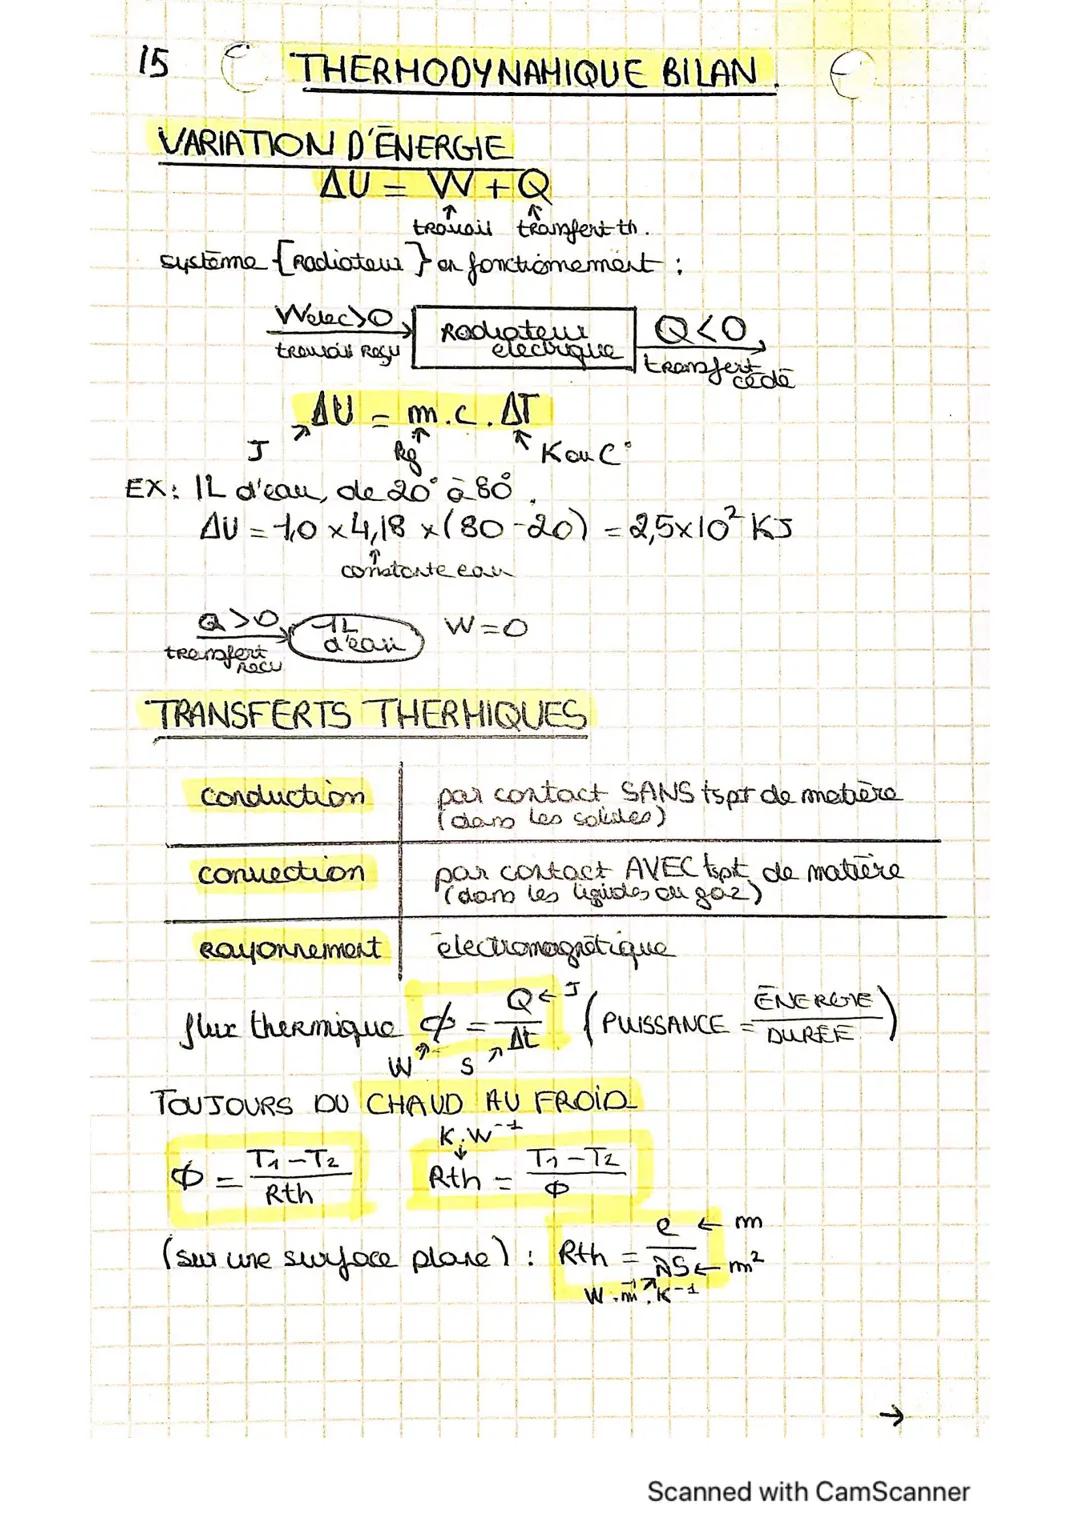 15 THERMODYNAMIQUE BILAN.
VARIATION D'ÉNERGIE
ΔU = W + Q
↑ ↑
travail transfert th.
système {Radiateur} en fonctionnement :
Welec>0 Radiateur Q<0
travail Reçu électrique transfert
cédé
ΔU = m.c.ΔT
J kg K ou C°
EX: 1L d'eau, de 20° à 80°.
ΔU = 1,0 x 4,18 x (80-20) = 2,5x10² KJ
↑
constante eau
Q>0 1L W=0
transfert d'eau
reçu
TRANSFERTS THERMIQUES
conduction par contact SANS tspt de matière
(dans les solides)
convection par contact AVEC tspt de matière
(dans les liqides ou gaz)
Rayonnement électromagnétique
flux thermique ϕ = Q/Δt ← J (PUISSANCE = ÉNERGIE/DURÉE)
W S
TOUJOURS DU CHAUD AU FROID
K.W⁻¹
↓
Φ = T₁-T₂/Rth Rth = T₁-T₂/Φ
(sur une surface plane) : Rth = e/λS ← m ← m²
W.m⁻¹.K⁻¹
→
Scanned with CamScanner